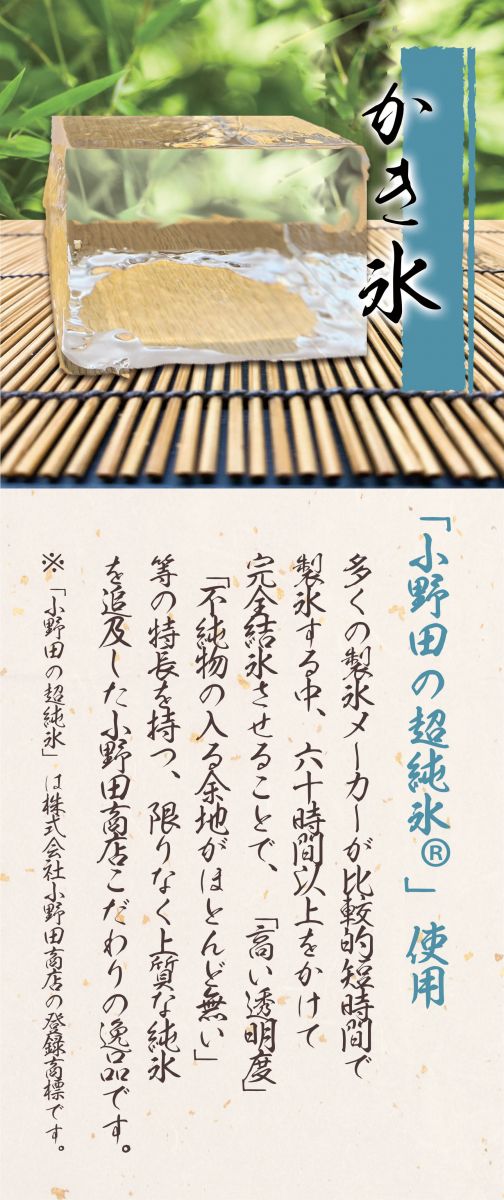 かき氷
「小野田の超純氷®」使用
多くの製氷メーカーが比較的短時間で
製氷する中、六十時間以上をかけて
完全結氷させることで、「高い透明度」
「不純物の入る余地がほとんど無い」
等の特長を持つ、限りなく上質な純氷
を追及した小野田商店こだわりの逸品です。
※「小野田の超純氷」は株式会社小野田商店の登録商標です。